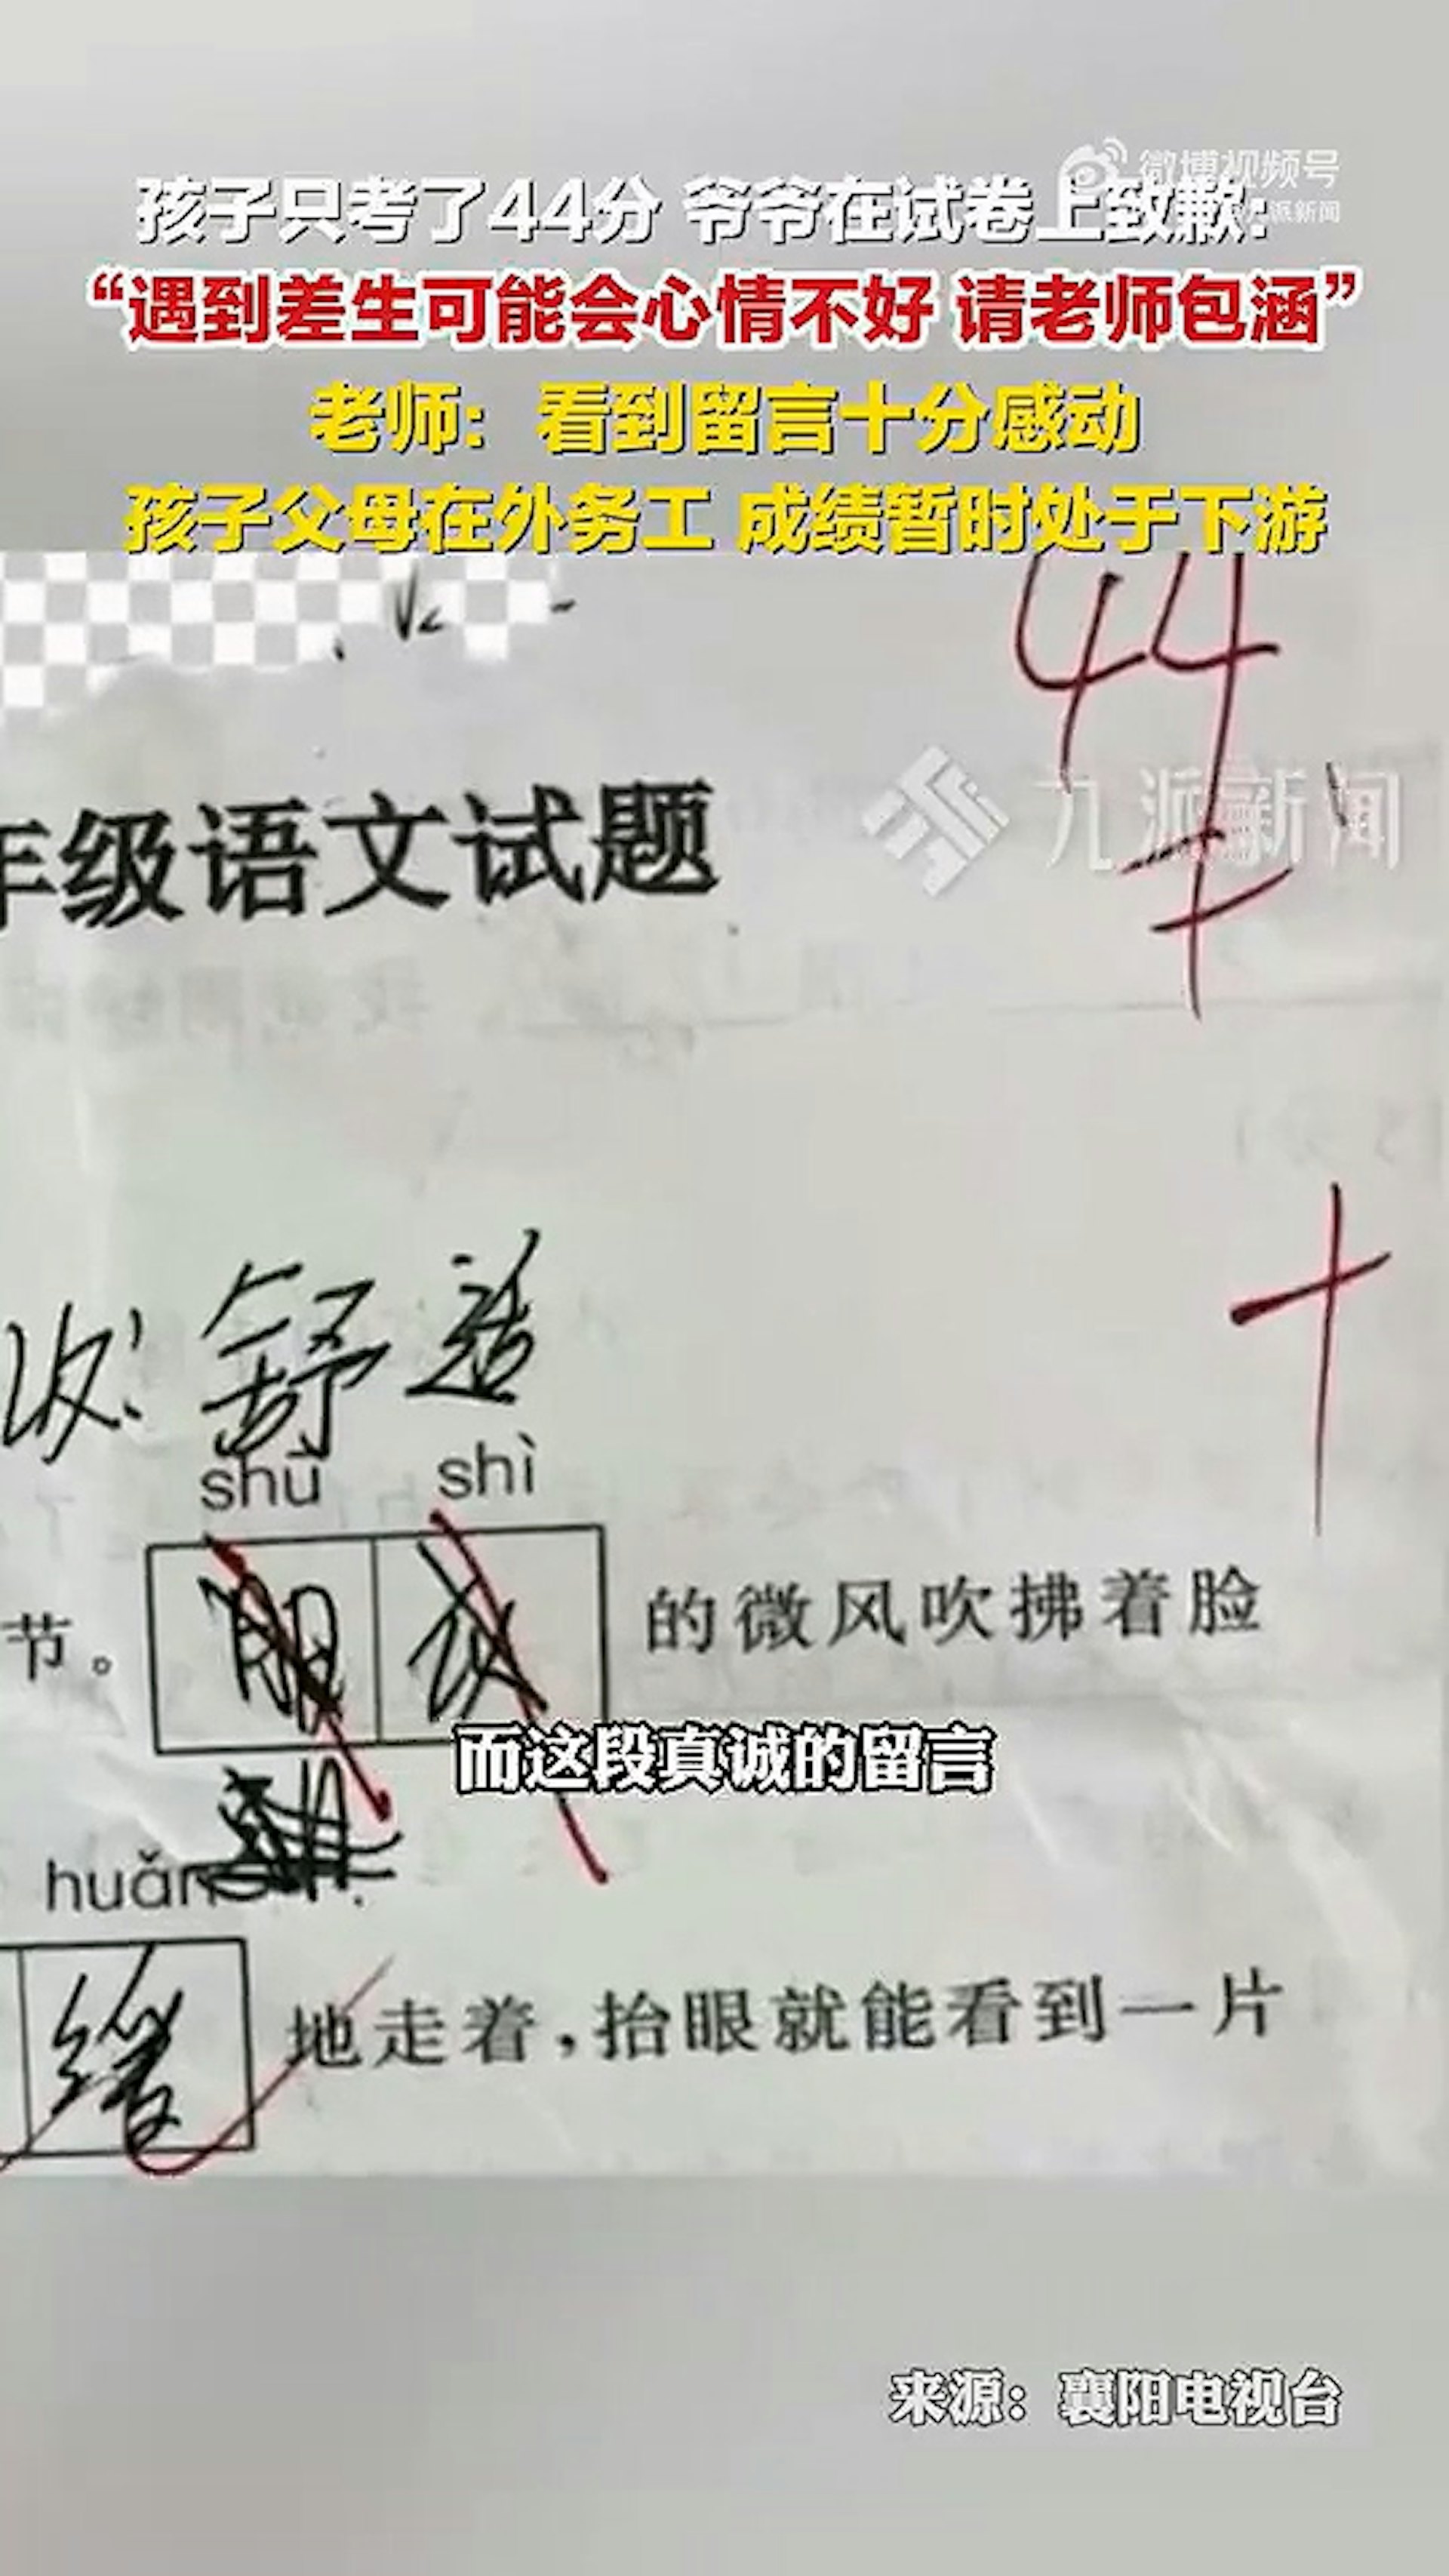 微博视频号
九派新闻
孩子只考了44分 爷爷在试卷上致歉:
“遇到差生可能会心情不好 请老师包涵”
老师：看到留言十分感动
孩子父母在外务工 成绩暂时处于下游
44
九派新闻
年级语文试题
改: 舒适
shū shì
节。 的微风吹拂着脸
而这段真诚的留言
huǎn
地走着,抬眼就能看到一片
来源：襄阳电视台